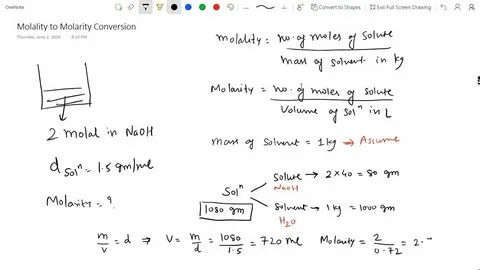 OneNote
Convert to Shapes
Exit Full Screen Drawing
Molality to Molarity Conversion
Thursday, June 2, 2016 8:22 PM
Molality = no. of moles of solute / mass of solvent in kg
Molarity = no. of moles of solute / Volume of solⁿ in L
2 molal in NaOH
mass of solvent = 1 kg → Assume
d solⁿ = 1.5 gm/ml
Molarity = ?
Solⁿ
1080 gm
Solute → 2 × 40 = 80 gm
NaOH
Solvent → 1 kg = 1000 gm
H₂O
m/v = d ⇒ V = m/d = 1080/1.5 = 720 ml
Molarity = 2/0.72 = 2.